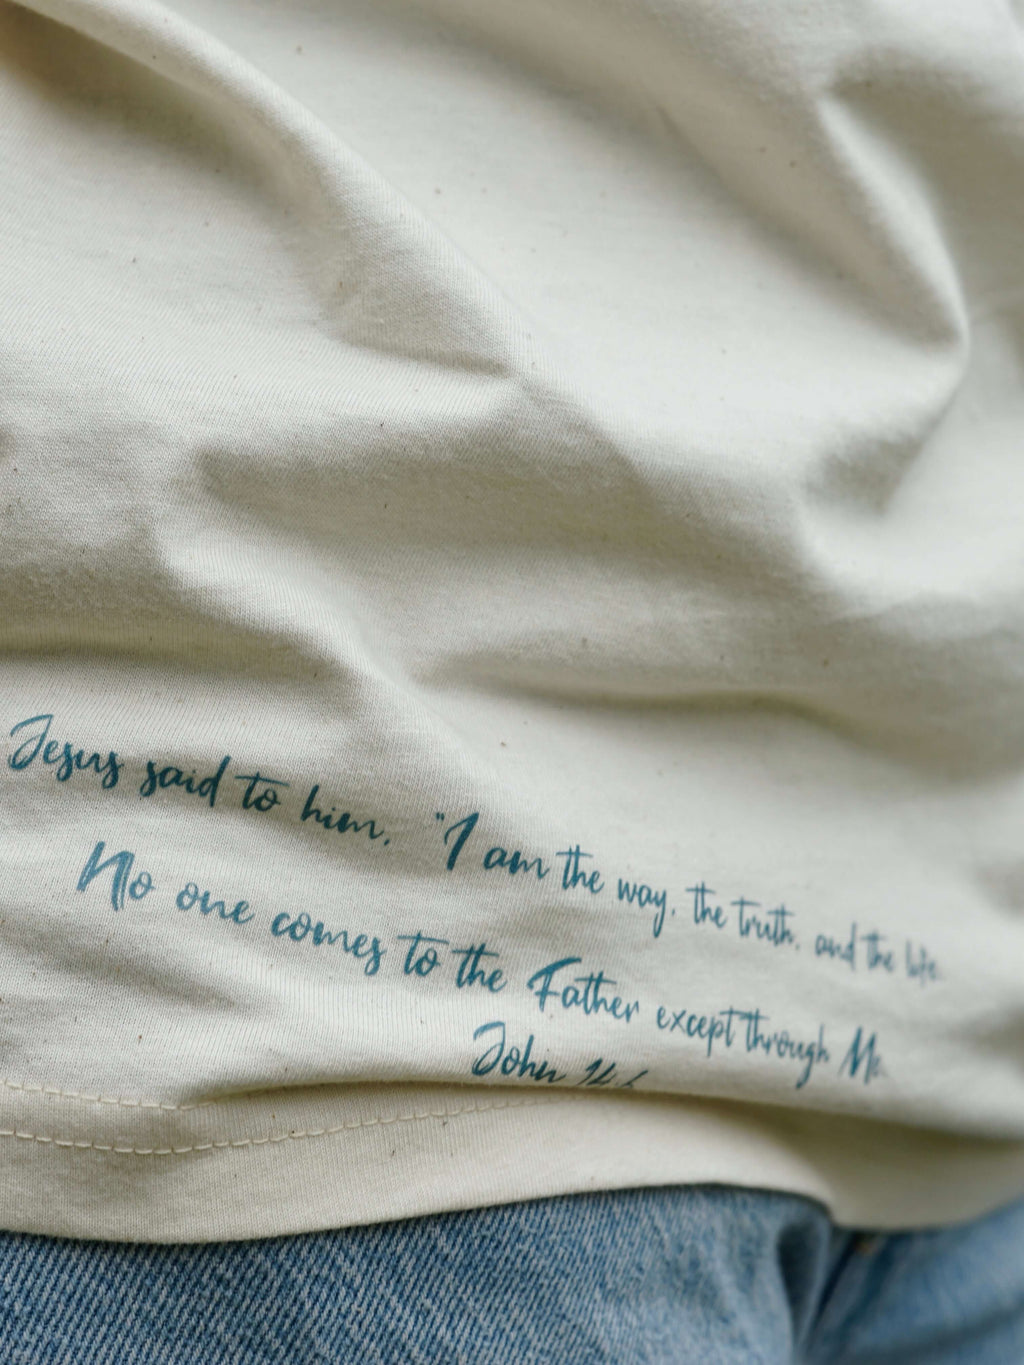 Jesus said to him, "I am the way, the truth, and the life.
No one comes to the Father except through Me.
John 14:6